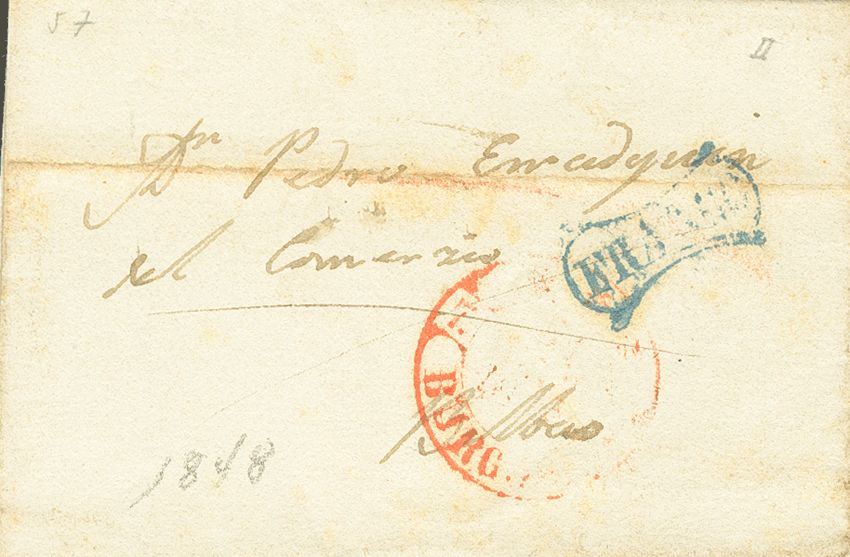 57
II
Dn Pedro Erradquin
del Comercio
FRANCO
BURG.
Bilbao
1848